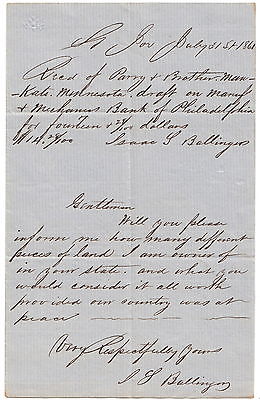 St Jov July 31 St 1861
Recd of Parry & Brother. Man-
Kato. Minnesota. draft on Manuf
& Mechanics Bank of Philadelphia
for fourteen & 24/100 dollars
$14.24/100 Isaac S Ballinger
Gentlemen
Will you please
inform me how many different
pieces of land I am owner of
in your state. and what you
would consider it all worth
provided our country was at
peace
Very Respectfully Yours
I S Ballinger